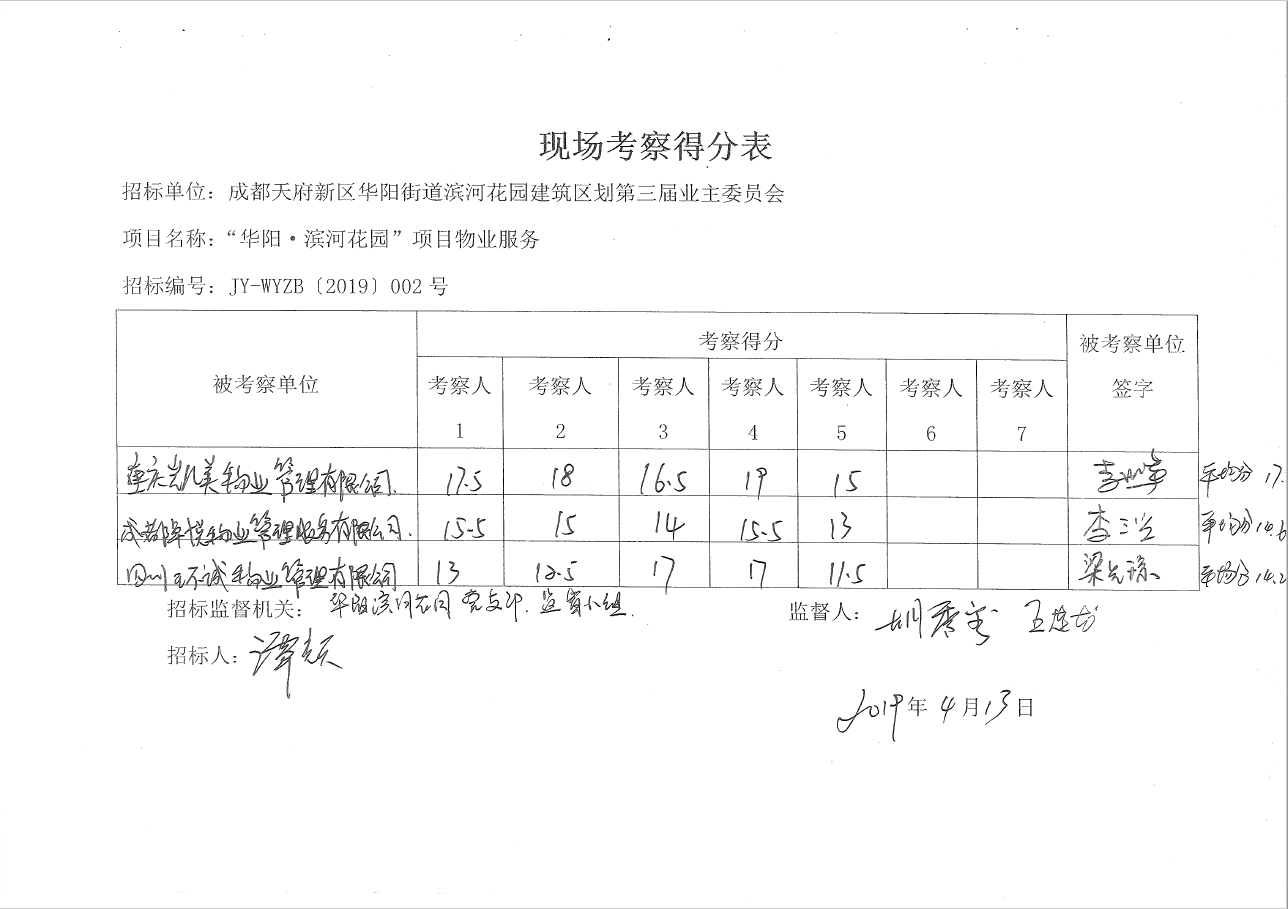 现场考察得分表
招标单位：成都天府新区华阳街道滨河花园建筑区划第三届业主委员会
项目名称：“华阳·滨河花园”项目物业服务
招标编号：JY-WYZB〔2019〕002 号
被考察单位 考察得分 被考察单位签字
考察人1 考察人2 考察人3 考察人4 考察人5 考察人6 考察人7
重庆凯美物业管理有限公司. 17.5 18 16.5 19 15 平均分 17.
成都 物业管理服务有限公司. 15.5 15 14 15.5 13 李 平均分 14.6
四川 物业管理有限公司 13 12.5 17 17 11.5 梁 平均分 14.2
招标监督机关： 华阳滨河花园党支部. 监督小组. 监督人：
招标人：
2019年4月13日